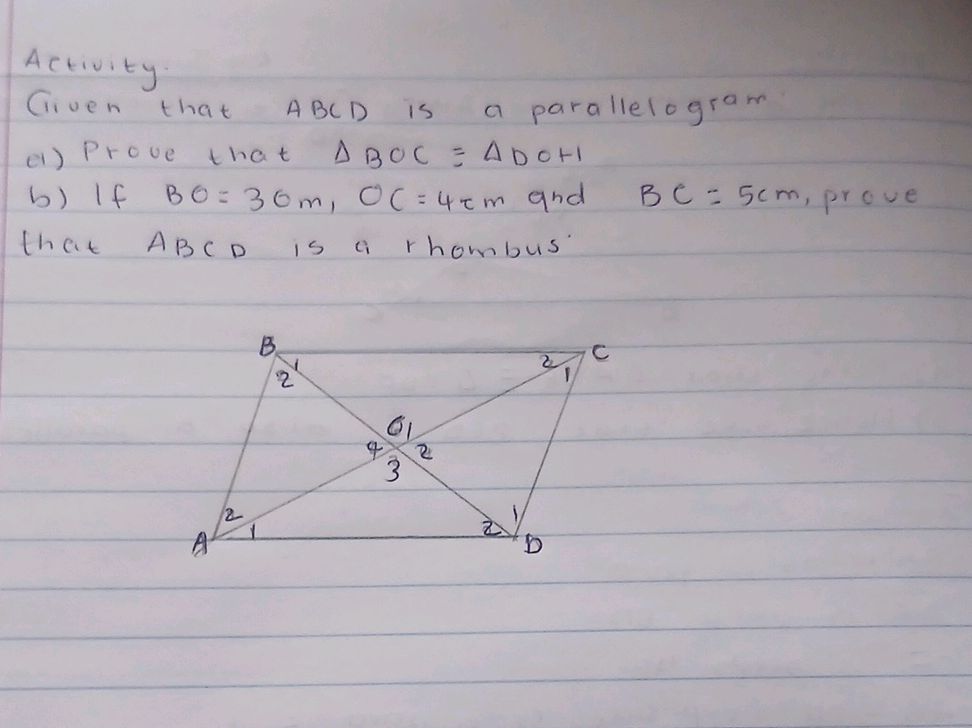 Activity.
Given that ABCD is a parallelogram
a) Prove that ΔBOC ≡ ΔDOA
b) If BO = 3cm, OC = 4cm and BC = 5cm, prove
that ABCD is a rhombus
B 1 2 C
2 1
O 1
4 2
3
2 1
A 1 2 D